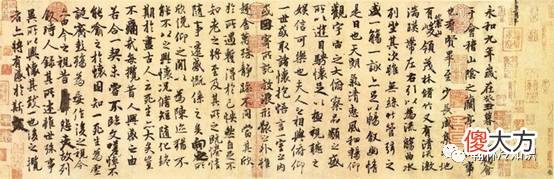 永和九年歲在癸丑暮春之初會
于會稽山陰之蘭亭脩稧事
也羣賢畢至少長咸集此地
有崇山峻領茂林脩竹又有清流激
湍暎帶左右引以為流觴曲水
列坐其次雖無絲竹管弦之
盛一觴一詠亦足以暢敘幽情
是日也天朗氣清惠風和暢仰
觀宇宙之大俯察品類之盛
所以遊目騁懷足以極視聽之
娛信可樂也夫人之相與俯仰
一世或取諸懷抱悟言一室之內
或因寄所託放浪形骸之外雖
趣舍萬殊靜躁不同當其欣
於所遇暫得於己怏然自足不
知老之將至及其所之既惓情
隨事遷感慨係之矣向之所
欣俛仰之閒以為陳迹猶不
能不以之興懷況脩短隨化終
期於盡古人云死生亦大矣豈
不痛哉每攬昔人興感之由
若合一契未嘗不臨文嗟悼不
能喻之於懷固知一死生為虛
誕齊彭殤為妄作後之視今
亦由今之視昔悲夫故列
敘時人錄其所述雖世殊事
異所以興懷其致一也後之攬
者亦將有感於斯文
傻大方